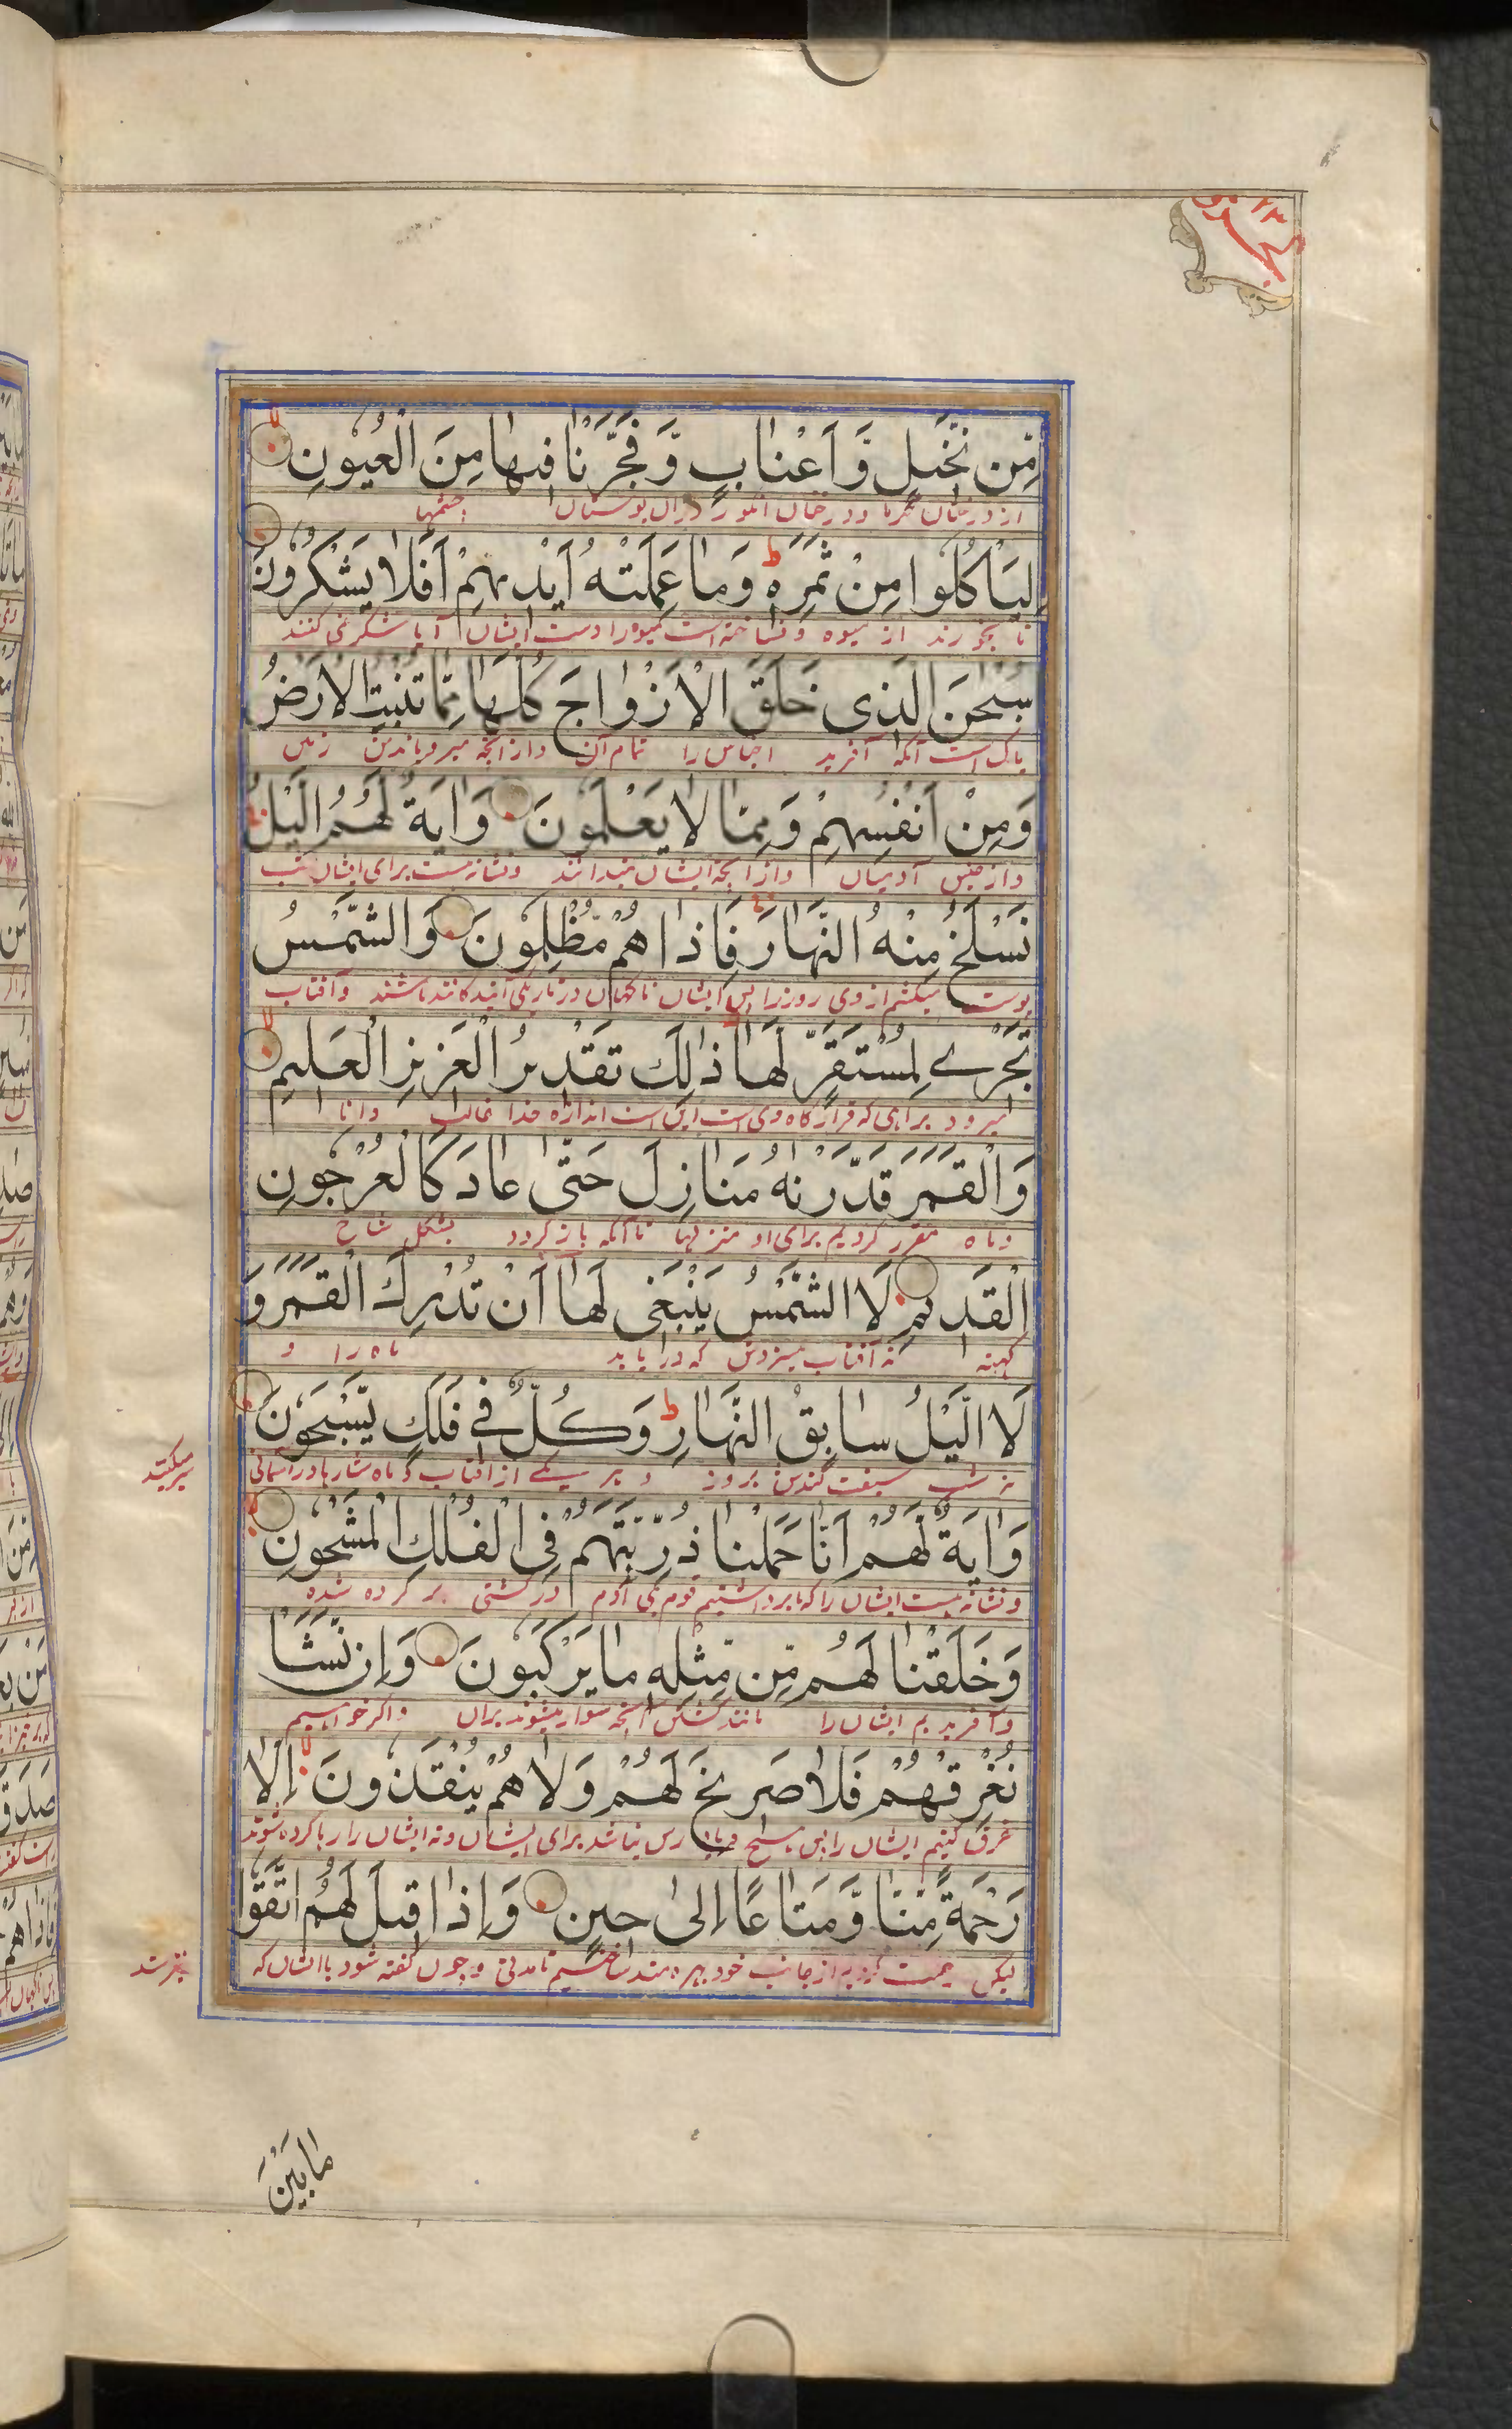 مِّن نَّخِیلٍ وَّاَعْنَابٍ وَّفَجَّرْنَا فِیهَا مِنَ الْعُیُونِ
از درختان خرما و درختان انگور دران بوستان چشمها
لِیَاْكُلُوا مِنْ ثَمَرِهٖ ط وَمَا عَمِلَتْهُ اَیْدِیهِمْ اَفَلَا یَشْكُرُونَ
تا بخورند از میوه و نساخته است میوه را دست ایشان آیا شکر نمی کنند
سُبْحٰنَ الَّذِی خَلَقَ الْاَزْوَاجَ كُلَّهَا مِمَّا تُنْبِتُ الْاَرْضُ
پاک است آنکه آفرید اجناس را تمام آن و از انچه میرویاندش زمین
وَمِنْ اَنْفُسِهِمْ وَمِمَّا لَا یَعْلَمُونَ وَاٰیَةٌ لَهُمُ الَّیْلُ
و از جنس آدمیان و از انچه ایشان نمیدانند و نشانه هست برای ایشان شب
نَسْلَخُ مِنْهُ النَّهَارَ فَاِذَا هُمْ مُظْلِمُونَ وَالشَّمْسُ
پوست میکشم از وی روز را پس ایشان ناگهان در تاریکی آیندکانند باشند و آفتاب
تَجْرِے لِمُسْتَقَرٍّ لَهَا ذٰلِكَ تَقْدِیرُ الْعَزِیزِ الْعَلِیمِ
میرود براهی که قرارگاه وی است این است اندازه خدا غالب دانا
وَالْقَمَرَ قَدَّرْنٰهُ مَنَازِلَ حَتّٰى عَادَ كَالْعُرْجُونِ
و ماه مقرر کردیم برای او منزلها تا آنکه باز گردد بشکل شاخ
الْقَدِیمِ لَا الشَّمْسُ یَنْبَغِی لَهَا اَنْ تُدْرِكَ الْقَمَرَ وَ
کهنه نه آفتاب میسزدش که دریابد ماه را و
لَا الَّیْلُ سَابِقُ النَّهَارِ ط وَكُلٌّ فِے فَلَكٍ یَسْبَحُونَ
نه شب سبقت کنده بروز و هر یکے از آفتاب و ماه ستارها در آسمانی
سیر میکنند
وَاٰیَةٌ لَّهُمْ اَنَّا حَمَلْنَا ذُرِّیَّتَهُمْ فِی الْفُلْكِ الْمَشْحُونِ
و نشانه هست ایشان را که ما برداشتیم قوم بنی آدم در کشتی پر کرده شده
وَخَلَقْنَا لَهُم مِّن مِّثْلِهٖ مَا یَرْكَبُونَ وَاِن نَّشَاْ
و آفریدیم ایشان را مانند کشتی انچه سوار میشوند بران و اگر خواهیم
نُغْرِقْهُمْ فَلَا صَرِیخَ لَهُمْ وَلَا هُمْ یُنْقَذُونَ اِلَّا
غرق کنیم ایشان را پس هیچ فریاد رس نباشد برای ایشان و نه ایشان را رها کرده شوند
رَحْمَةً مِّنَّا وَّمَتَاعًا اِلٰى حِینٍ وَاِذَا قِیلَ لَهُمُ اتَّقُوا
لیکن از جانب خود بهره مند ساختیم تا مدتی و چون گفته شود با ایشان که
بترسید
مَا بَیْنَ